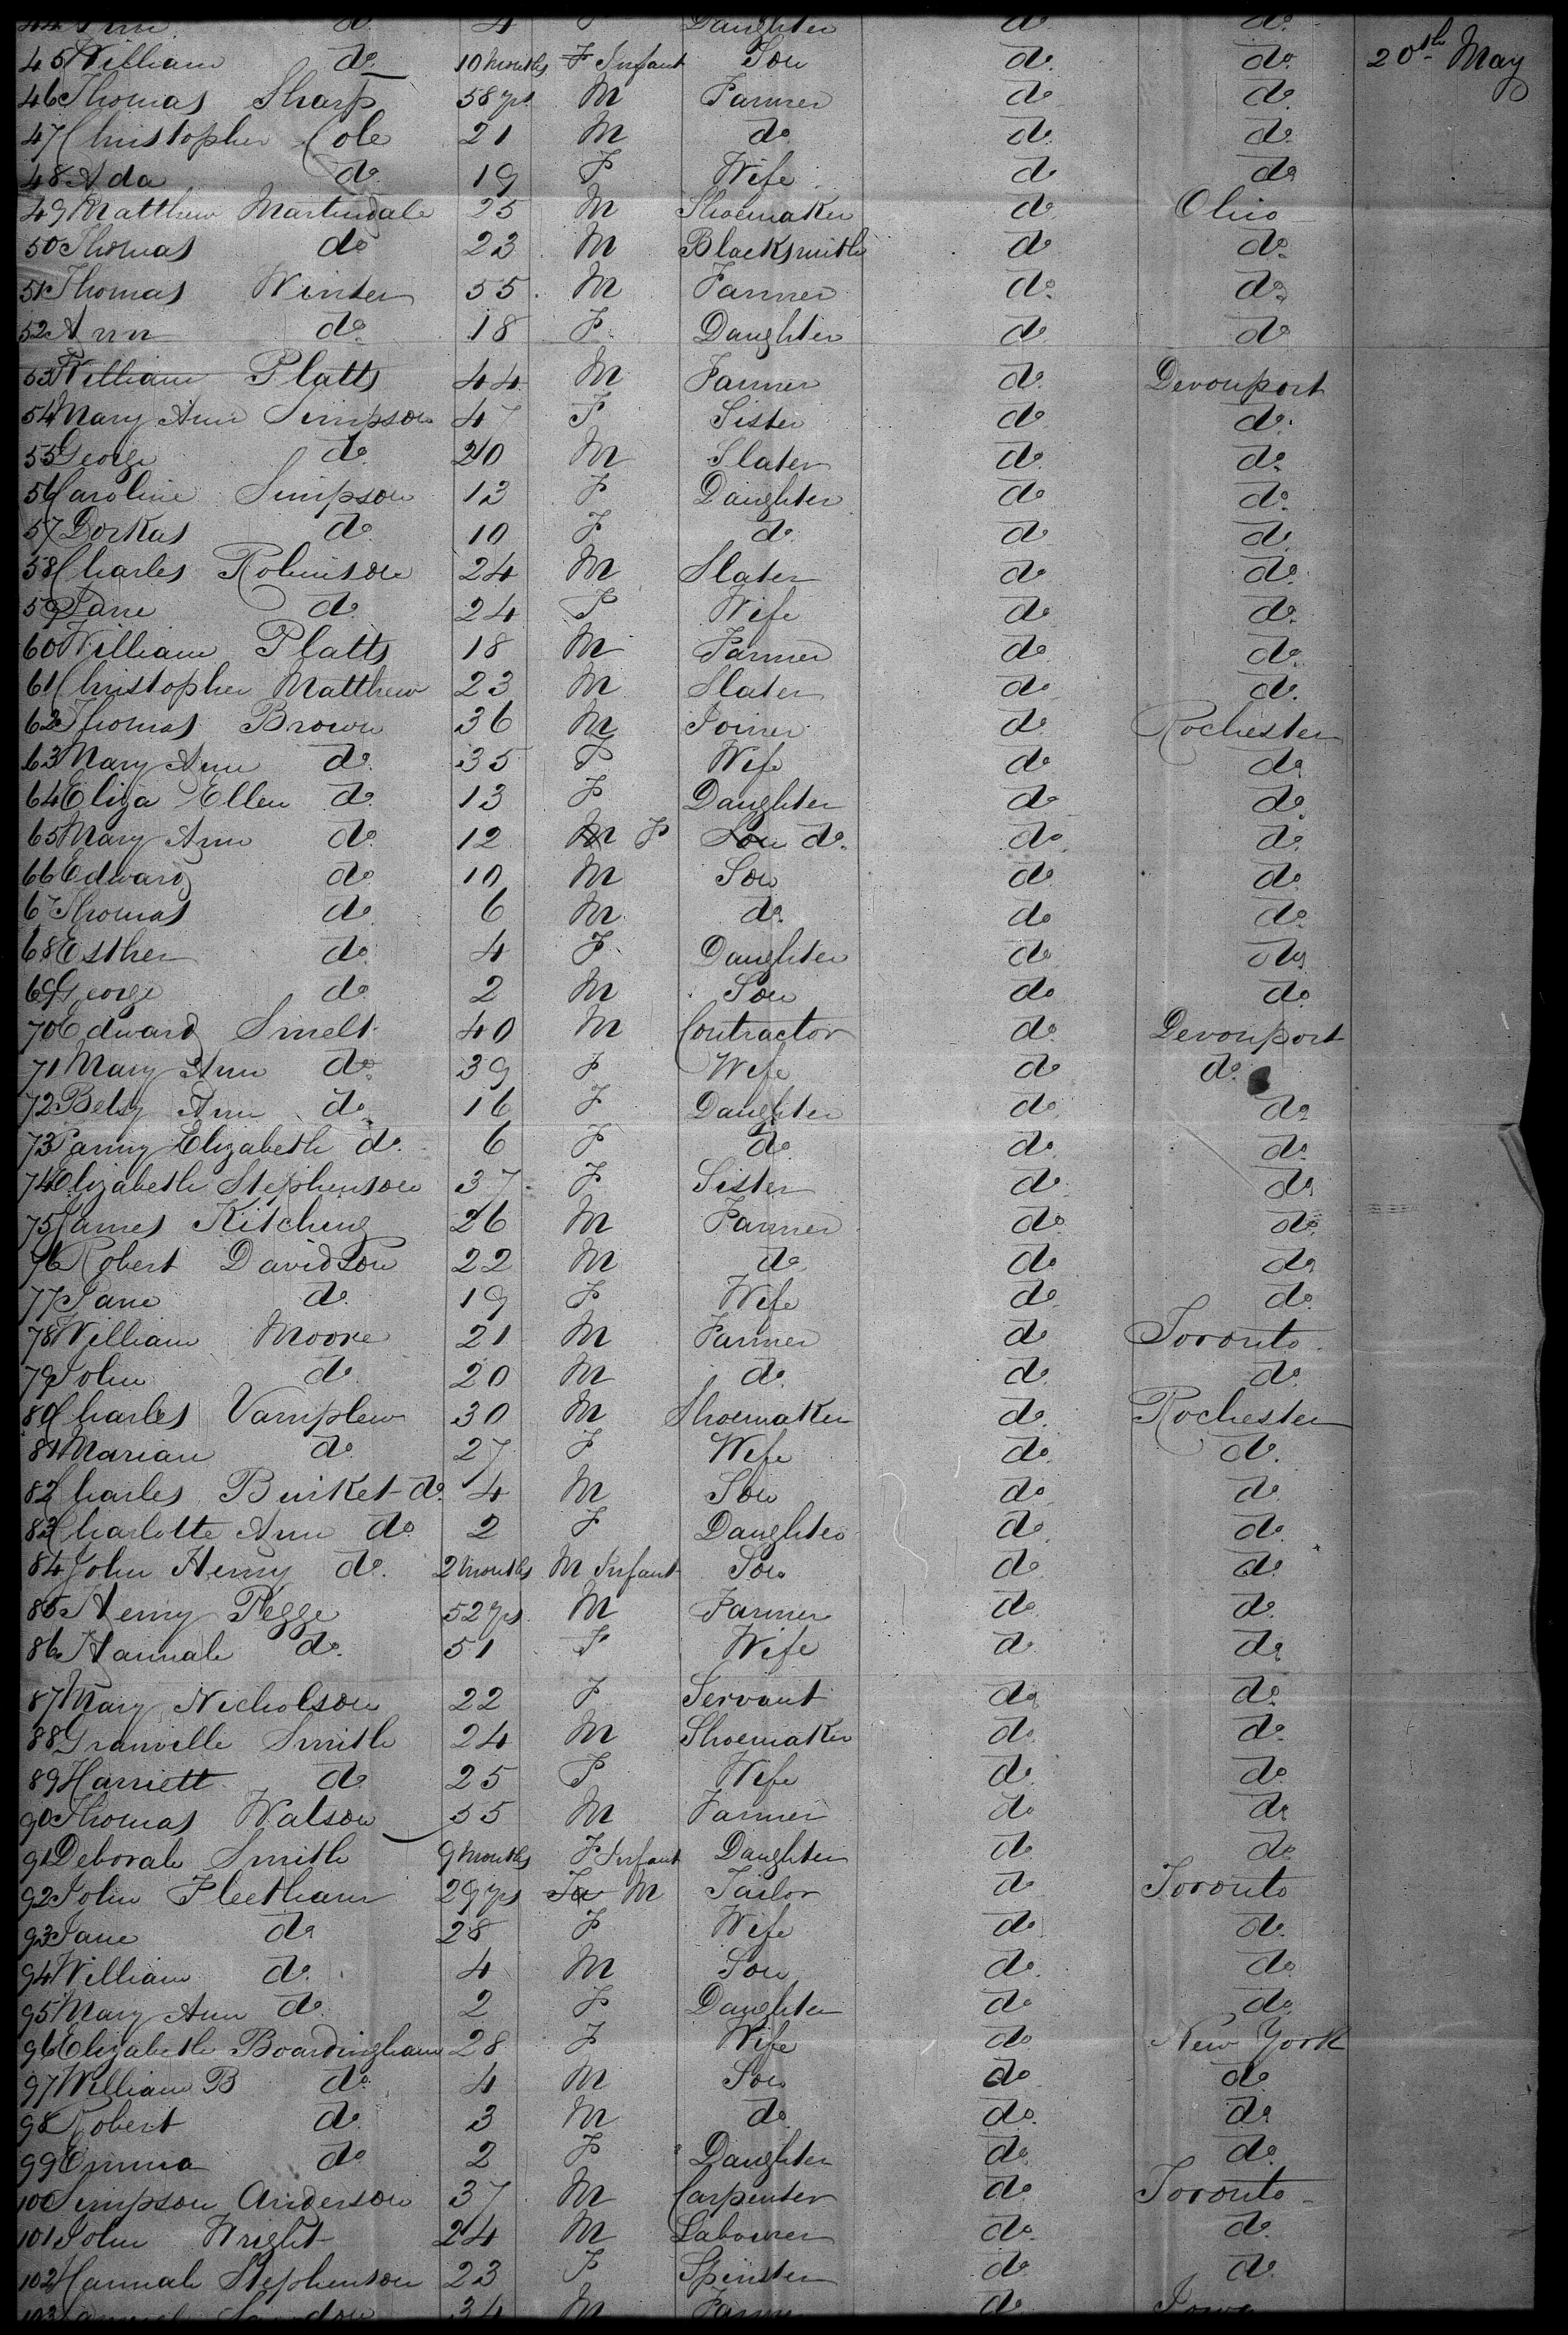 44 Ann do 4 F Daughter do do
45 William do 10 months F Infant Son do do 20th May
46 Thomas Sharp 58 yrs M Farmer do do
47 Christopher Cole 21 M do do do
48 Ada do 19 F Wife do do
49 Matthew Martindale 25 M Shoemaker do Ohio
50 Thomas do 23 M Blacksmith do do
51 Thomas Winter 55 M Farmer do do
52 Ann do 18 F Daughter do do
53 William Platts 44 M Farmer do Devonport
54 Mary Ann Simpson 47 F Sister do do
55 George do 20 M Slater do do
56 Caroline Simpson 13 F Daughter do do
57 Dorkas do 10 F do do do
58 Charles Robinson 24 M Slater do do
59 Jane do 24 F Wife do do
60 William Platts 18 M Farmer do do
61 Christopher Matthew 23 M Slater do do
62 Thomas Brown 36 M Joiner do Rochester
63 Mary Ann do 35 F Wife do do
64 Eliza Ellen do 13 F Daughter do do
65 Mary Ann do 12 M F Son do do do
66 Edward do 10 M Son do do
67 Thomas do 6 M do do do
68 Esther do 4 F Daughter do do
69 George do 2 M Son do do
70 Edward Smelt 40 M Contractor do Devonport
71 Mary Ann do 39 F Wife do do
72 Betsy Ann do 16 F Daughter do do
73 Fanny Elizabeth do 6 F do do do
74 Elizabeth Stephenson 37 F Sister do do
75 James Kitching 26 M Farmer do do
76 Robert Davidson 22 M do do do
77 Jane do 19 F Wife do do
78 William Moore 21 M Farmer do Toronto
79 John do 20 M do do do
80 Charles Vamplew 30 M Shoemaker do Rochester
81 Marian do 27 F Wife do do
82 Charles Burket do 4 M Son do do
83 Charlotte Ann do 2 F Daughter do do
84 John Henry do 2 months M Infant Son do do
85 Henry Pegge 52 yrs M Farmer do do
86 Hannah do 51 F Wife do do
87 Mary Nicholson 22 F Servant do do
88 Granville Smith 24 M Shoemaker do do
89 Harriett do 25 F Wife do do
90 Thomas Watson 55 M Farmer do do
91 Deborah Smith 9 months F Infant Daughter do do
92 John Fleetham 29 yrs M Tailor do Toronto
93 Jane do 28 F Wife do do
94 William do 4 M Son do do
95 Mary Ann do 2 F Daughter do do
96 Elizabeth Boardingham 28 F Wife do New York
97 William B do 4 M Son do do
98 Robert do 3 M do do do
99 Emma do 2 F Daughter do do
100 Simpson Anderson 37 M Carpenter do Toronto
101 John Wright 24 M Labourer do do
102 Hannah Stephenson 23 F Spinster do do
103 34 M Farmer do Iowa